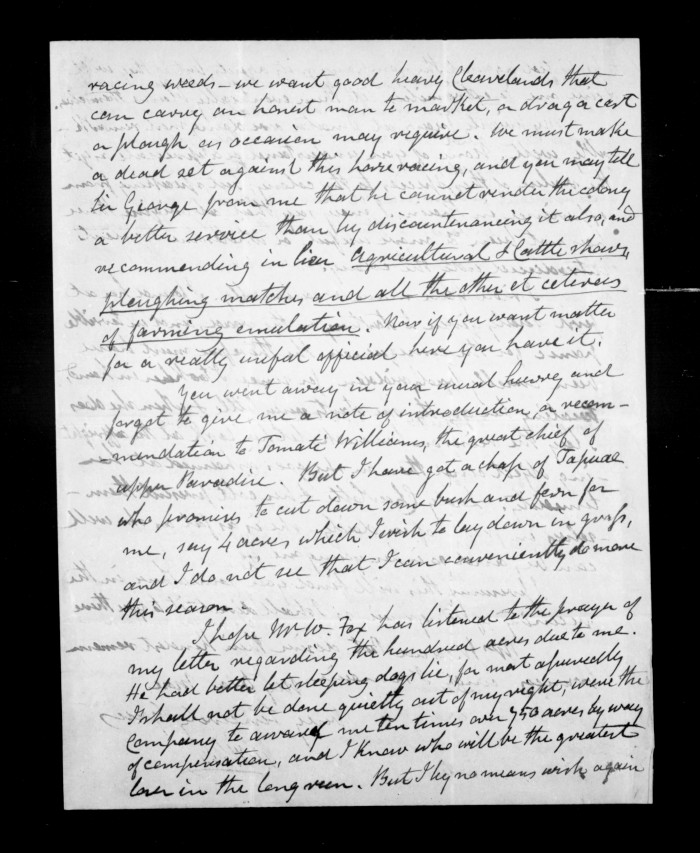 racing weeds - we want good heavy Clevelands that
can carry an honest man to market, or drag a cart
or plough as occasion may require. We must make
a dead set against this horse racing, and you may tell
Sir George from me that he cannot render the colony
a better service than by discountenancing it also, and
recommending in lieu Agricultural & Cattle shows,
ploughing matches and all the other et ceteras
of farming emulation. Now if you want matter
for a really useful official here you have it.
You went away in your usual hurry and
forgot to give me a note of introduction, or recom-
mendation to Tomati Williams, the great chief of
upper Paradise. But I have got a chap of Tapuae
who promises to cut down some bush and fern for
me, say 4 acres which I wish to lay down in grass,
and I do not see that I can conveniently do more
this season.
I hope Mr W. Fox has listened to the prayer of
my letter regarding the hundred acres due to me.
He had better let sleeping dogs lie, for most assuredly
I shall not be done quietly out of my right, were the
Company to award me ten times over 750 acres by way
of compensation, and I know who will be the greatest
loser in the long run. But I by no means wish again